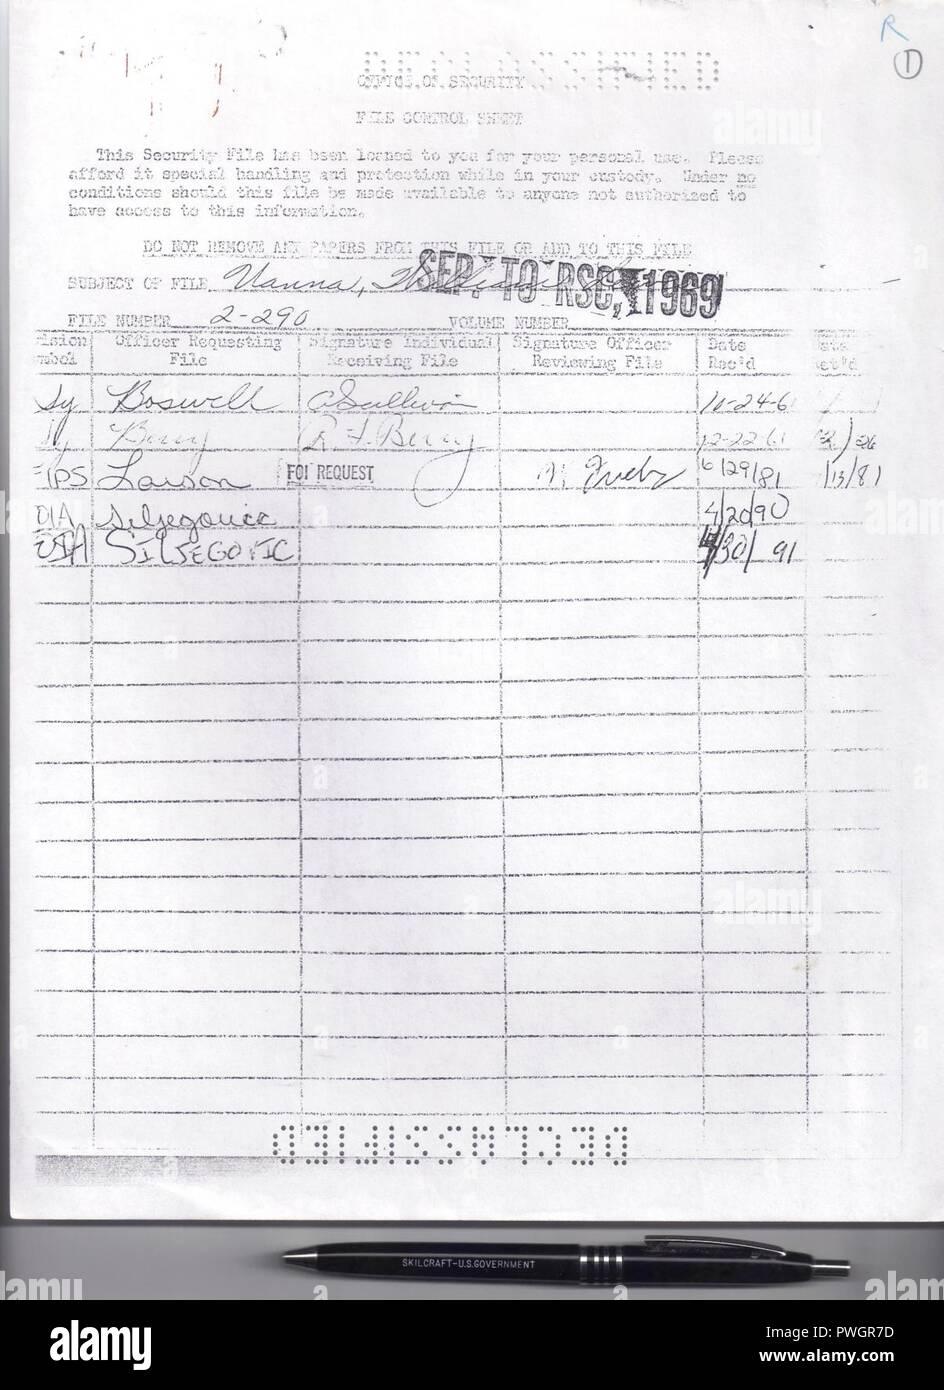 R
1
DECLASSIFIED
OFFICE OF SECURITY
FILE CONTROL SHEET
This Security File has been loaned to you for your personal use. Please
afford it special handling and protection while in your custody. Under no
conditions should this file be made available to anyone not authorized to
have access to this information.
DO NOT REMOVE ANY PAPERS FROM THIS FILE OR ADD TO THIS FILE
SEP. TO RSC, 1969
SUBJECT OF FILE Hanna, William
FILE NUMBER 2-290 VOLUME NUMBER
Officer Requesting Signature Individual Signature Officer Date
File Receiving File Reviewing File Rec'd
Sy Boswell O'Sullivan 10-24-61
Sy Berry R. F. Berry 12-22-61
IPS Larson FOI REQUEST 6/29/81 1/13/81
DIA Siljegovic 4/20/90
SILJEGOVIC 4/30/91
DECLASSIFIED
SKILCRAFT-U.S.GOVERNMENT
alamy
Image ID: PWGR7D
www.alamy.com